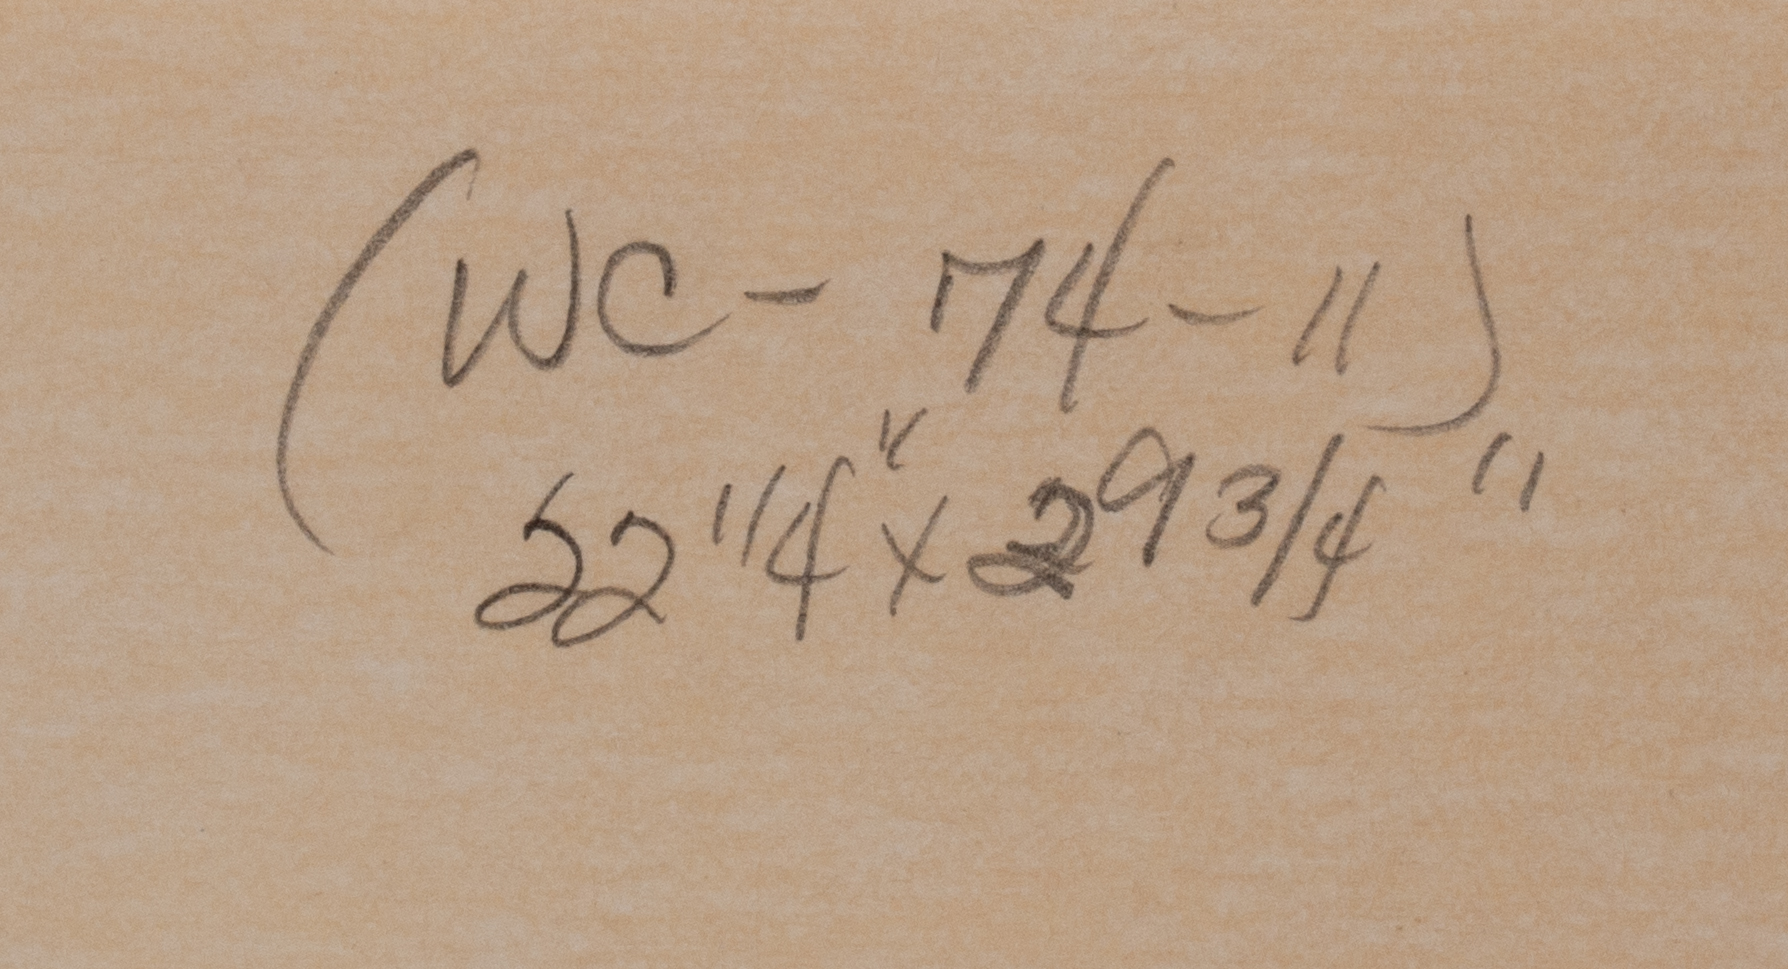 (WC - 74 - 11)
22 1/4" x 29 3/4"